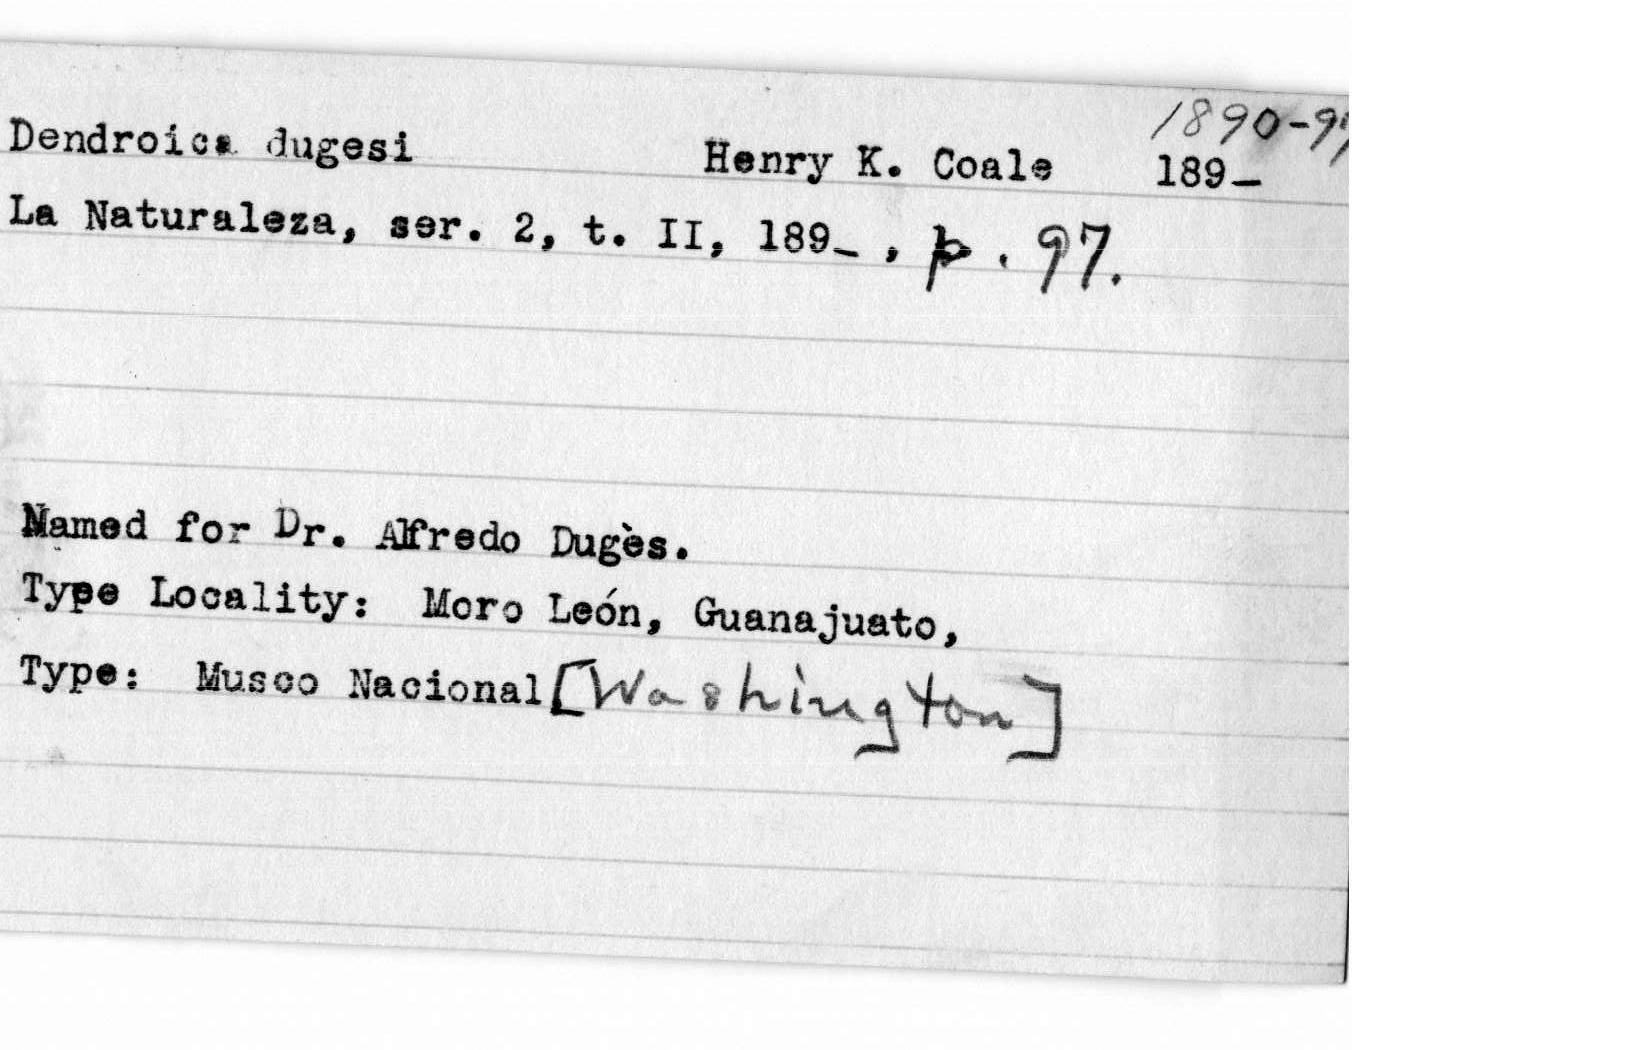 1890-9
Dendroica dugesi Henry K. Coale 189_
La Naturaleza, ser. 2, t. II, 189_ , p. 97.
Named for Dr. Alfredo Dugès.
Type Locality: Moro León, Guanajuato,
Type: Museo Nacional [Washington]